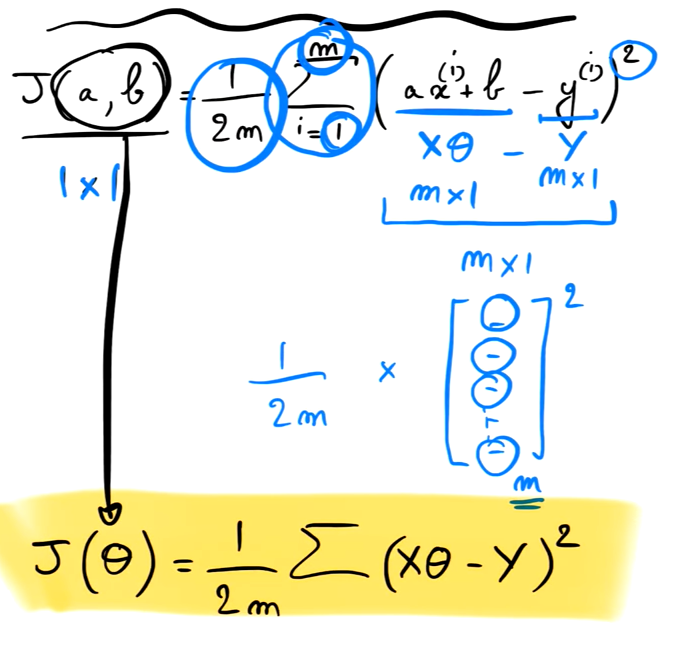 J(a, b) = 1/2m Σ_{i=1}^{m} (ax^{(i)} + b - y^{(i)})^2
Xθ - Y
1 x 1
m x 1 m x 1
m x 1
1/2m x [- - - ⋮ -]^2
m
J(θ) = 1/2m Σ (Xθ - Y)^2